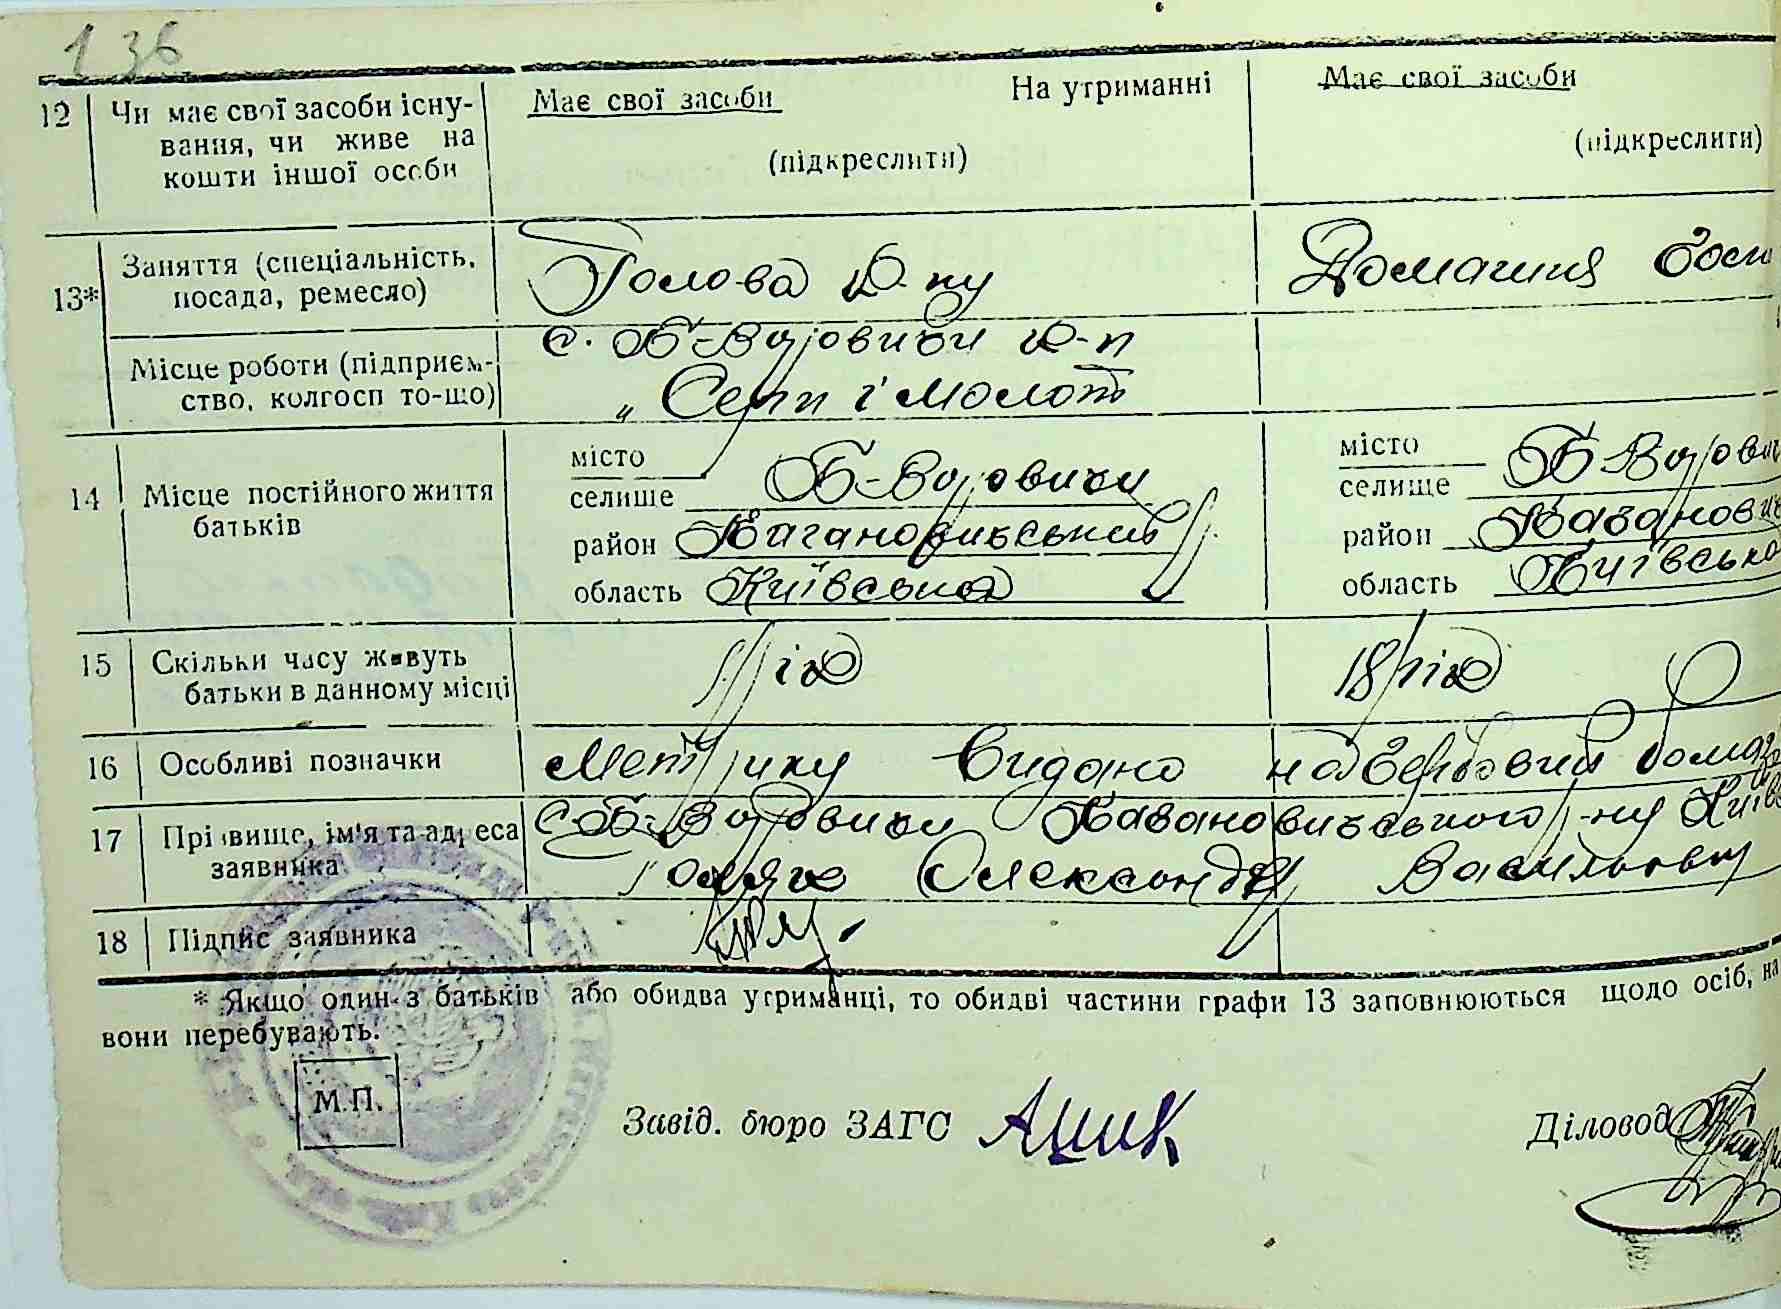 136
12 Чи має свої засоби існу- Має свої засоби На утриманні Має свої засоби
вання, чи живе на (підкреслити) (підкреслити)
кошти іншої особи
13* Заняття (спеціальність, Голова к-пу Домашня госп
посада, ремесло)
Місце роботи (підприєм- с. Б-Водовичи к-п
ство, колгосп то-що) „Серп і молот
14 Місце постійного життя
батьків
місто
селище
район Кагановичський
область Київська
місто
селище
район Каганович
область Київсько
15 Скільки часу живуть рік 18 рік
батьки в данному місці
16 Особливі позначки Метрику видано на гербовий
17 Прізвище, ім'я та адреса с. Кагановичського р-ну Київ
заявника Олександр Васильович
18 Підпис заявника
* Якщо один з батьків або обидва утриманці, то обидві частини графи 13 заповнюються щодо осіб, на
вони перебувають.
М.П.
Завід. бюро ЗАГС Діловод